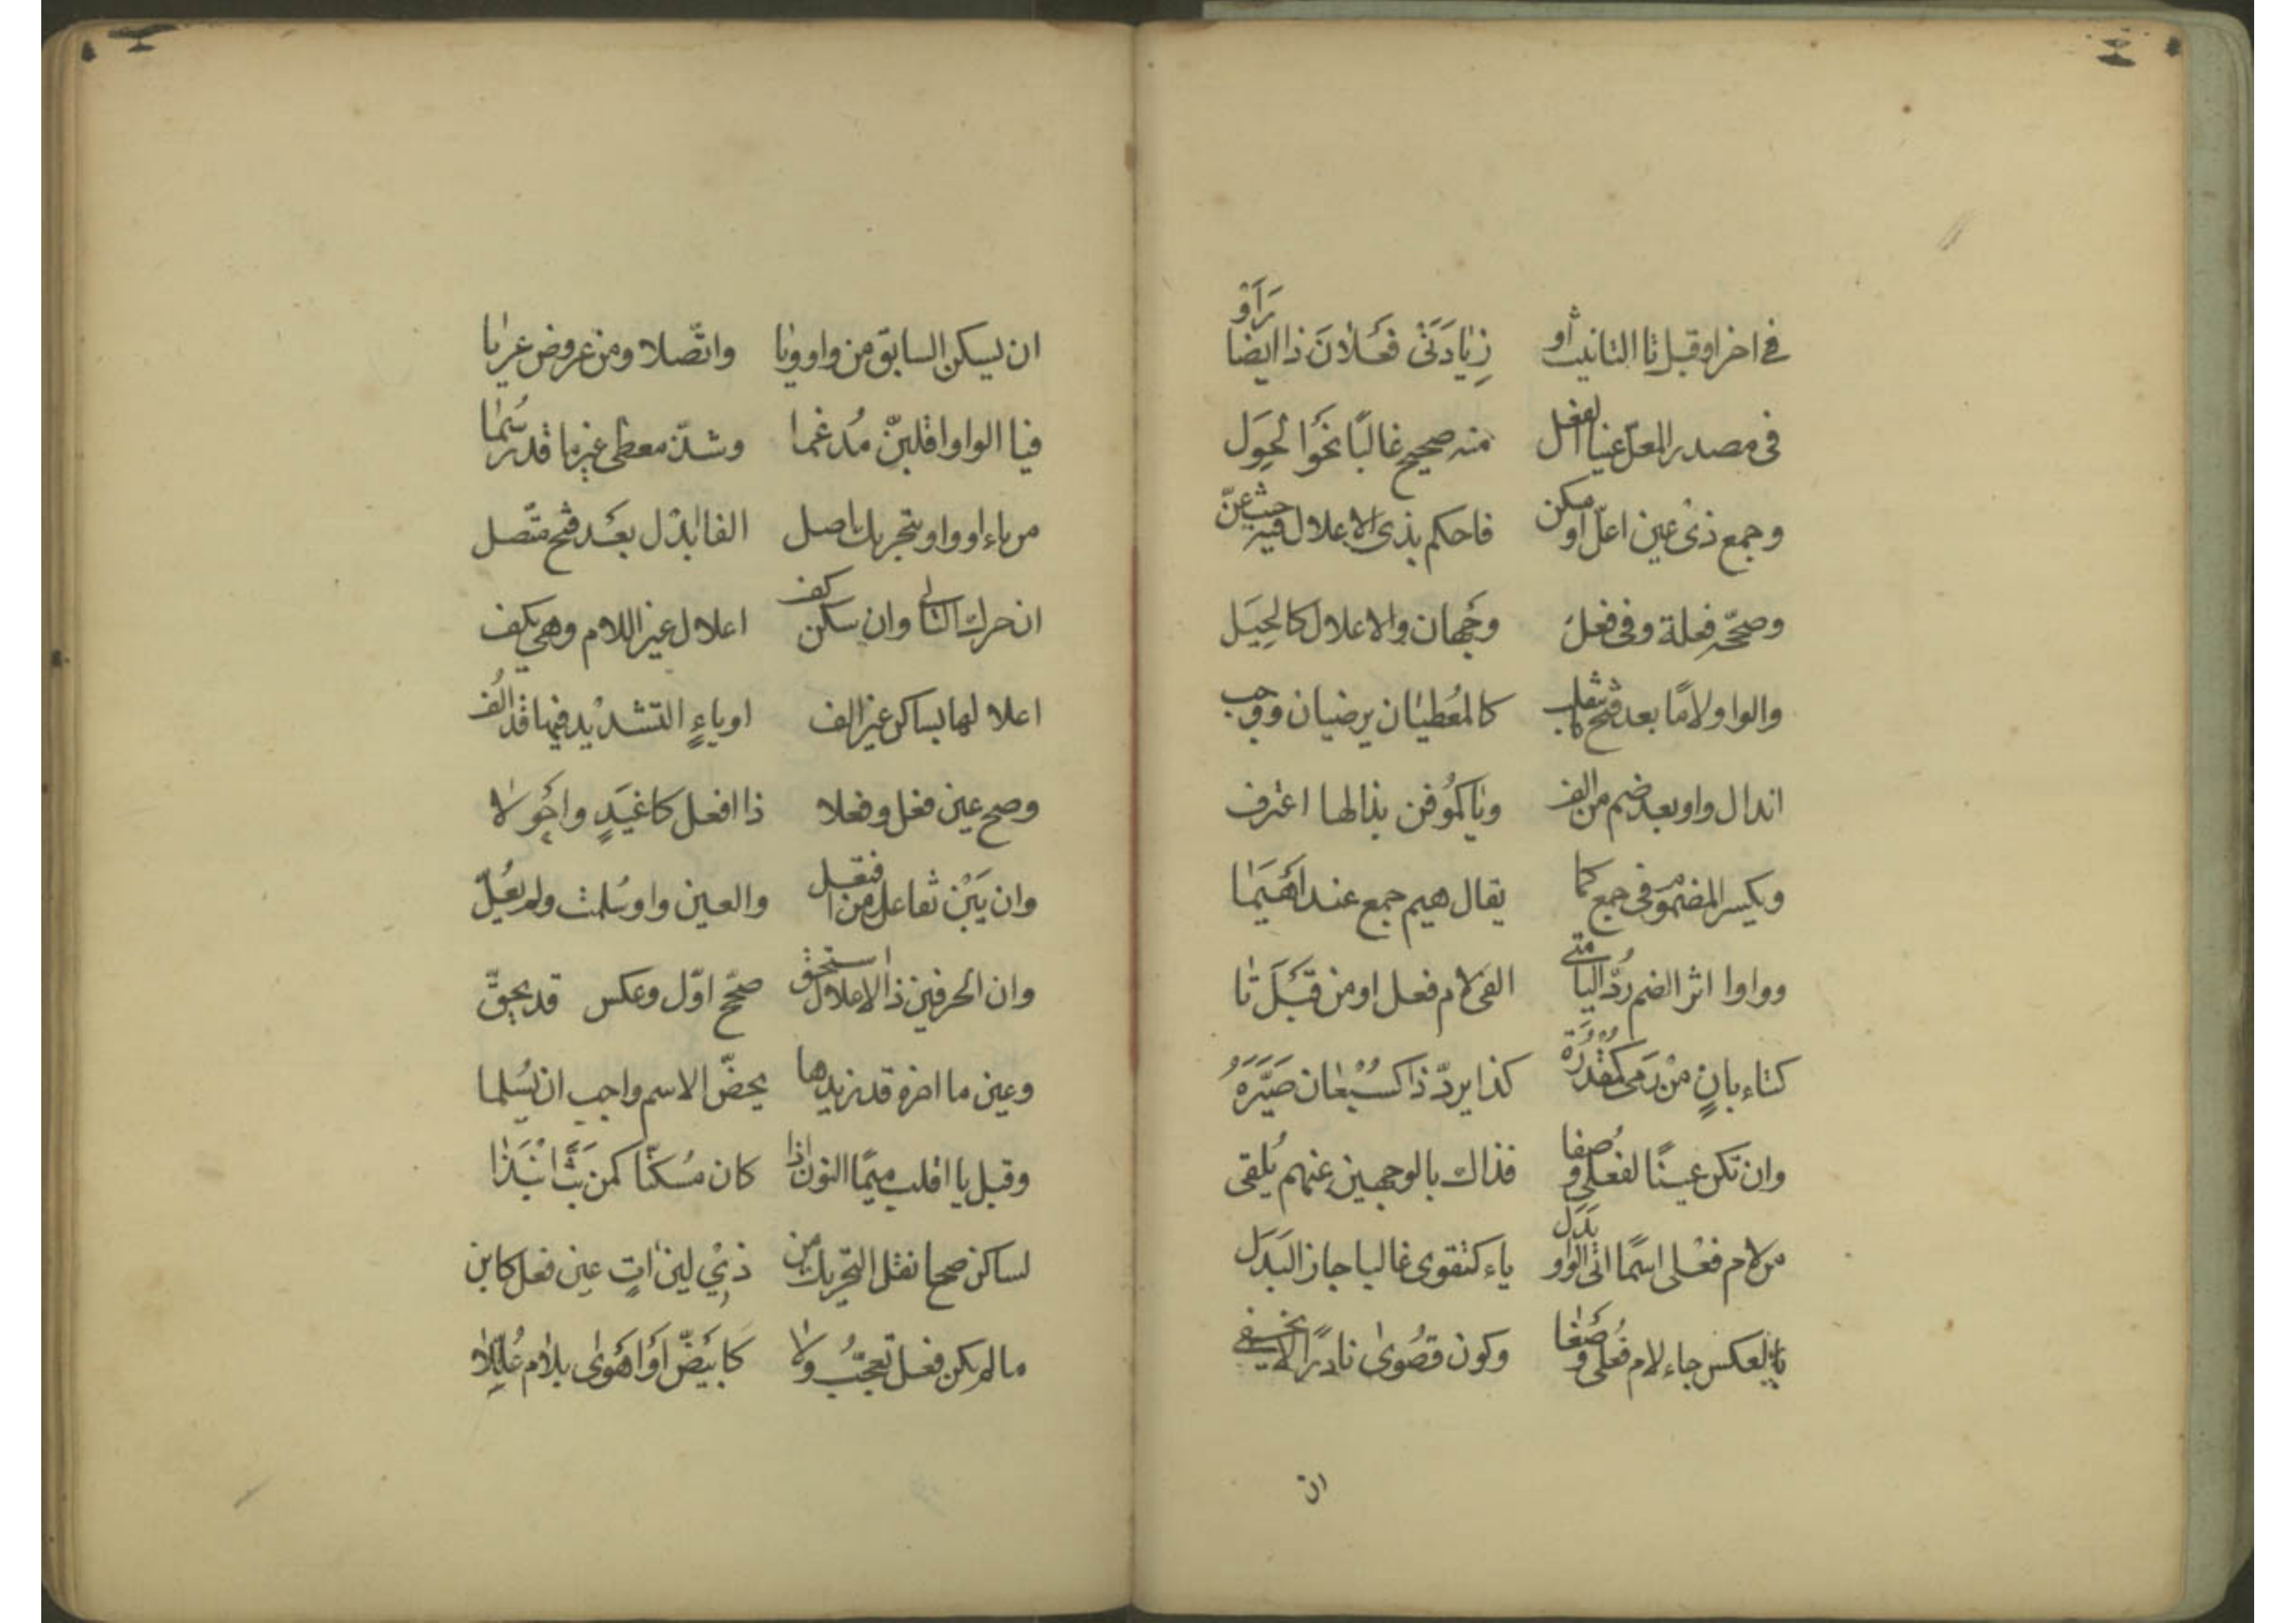 في اخر او قبل تا التانيث او زيادتى فعلان ذا ايضا راوْ
فى مصدر المعل عينا الفعل منه صحيح غالبًا نحو الحِوَل
وجمع ذى عين اعلّ او سكن فاحكم بذى الاعلال فيه حيث عنّ
وصحّحه فعلة وفى فعل وجهان والاعلال كالحِيَل
والواو لامًا بعد فتح يا انقلب كالمُعطيان يرضيان ووجب
ابدال واو بعد ضم من الف ويا كمُوقن بذالها اعترف
ويكسر المضموم فى جمع كما يقال هيم جمع عند اهيما
وواوا اثر الضم رُدّ اليا متى الفى لام فعل او من قبل تا
كتاء بانٍ من رمى كمقدرة كذا يردّ ذا كسبُعان صيّره
وان تكن عينًا لفعلى وصفا فذاك بالوجهين عنهم يُلقى
من لام فعلى اسمًا اتى الواو بدل ياء كتقوى غالبا جاز البدل
بالعكس جاء لام فُعلى وصفا وكون قصوى نادرًا لا يخفى
ان
ان يسكن السابق من واو ويا واتّصلا ومن عروض عريا
فيا الواو اقلبنّ مُدغما وشذّ معطى غير ما قد رُسما
من ياء او واو بتحريك اصل الفا ابدل بعد فتح متّصل
ان حرك التالى وان سكن كف اعلال غير اللام وهى يكف
اعلالها بساكن غير الف او ياءٍ التشديد فيها قد الف
وصح عين فعل وفعلا ذا افعل كاغيدٍ واحولا
وان يَبِن تفاعل من افتعل والعين واو سُلمت ولم يُعلّ
وان لحرفين ذا الاعلال استحق صحّح اوّل وعكس قد يحقّ
وعين ما اخره قد زيد ما يخصّ الاسم واجب ان يسلما
وقبل با اقلب ميمًا النون اذا كان مُسكنًا كمن بتّ انبذا
لساكن صح انقل التحريك من ذى لين اتٍ عين فعل كابن
ما لم يكن فعل تعجبُ ولا كابيَضّ او اهوى بلام عُلّلا